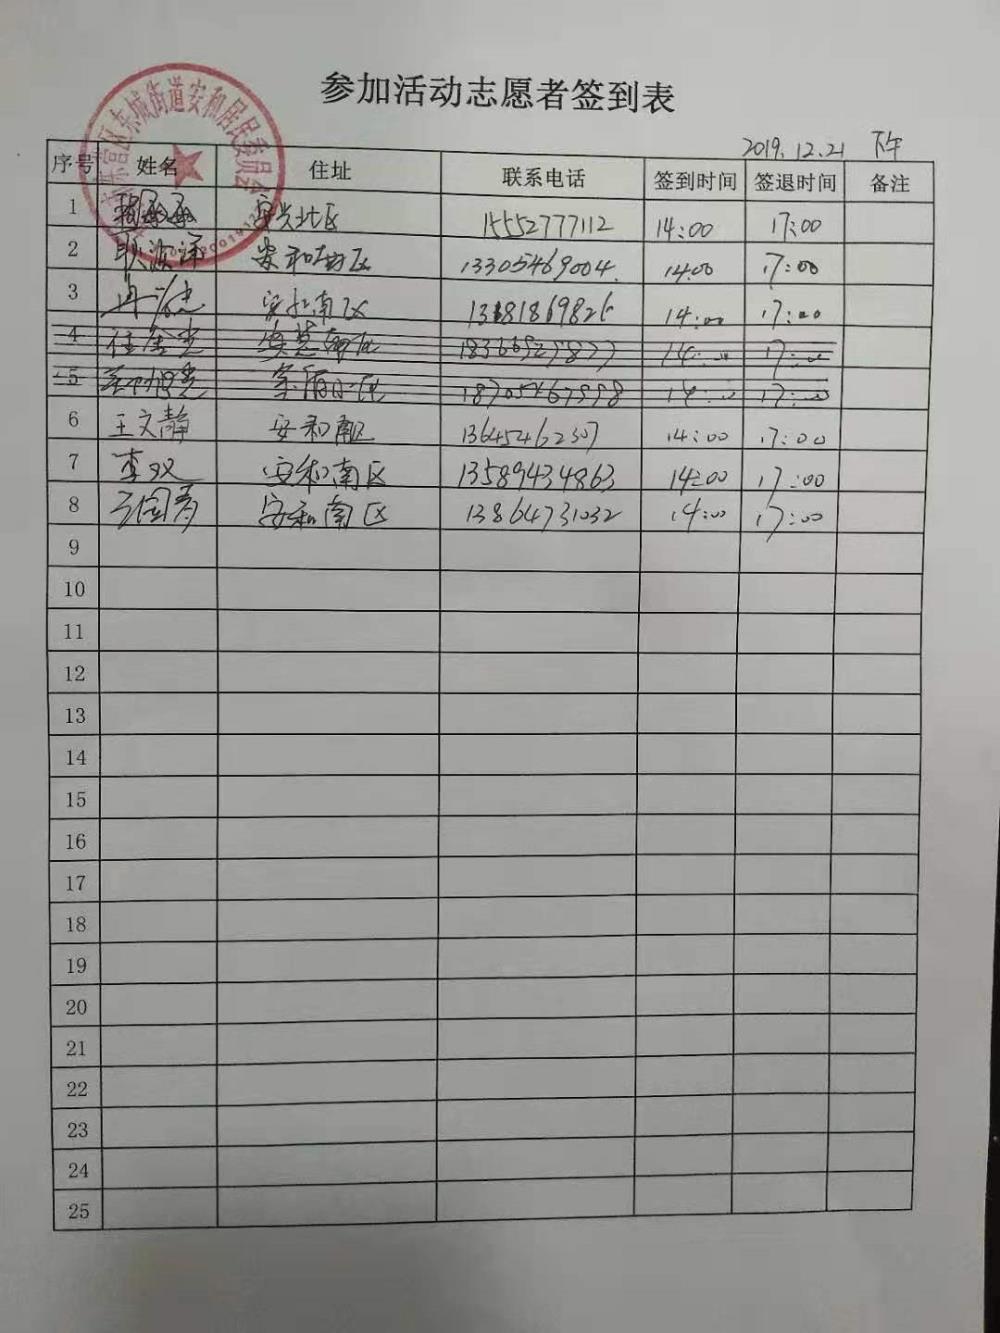 参加活动志愿者签到表
东营区东城街道安和居民委员会
2019.12.21 下午
序号 姓名 住址 联系电话 签到时间 签退时间 备注
1 安兴北区 15552777112 14:00 17:00
2 耿波洋 安和南区 13305469004 14:00 17:00
3 安和南区 13181869826 14:00 17:00
4 14:00 17:00
5 14:00 17:00
6 王文静 安和南区 13645462307 14:00 17:00
7 李双 安和南区 13589434863 14:00 17:00
8 安和南区 13864731032 14:00 17:00
9
10
11
12
13
14
15
16
17
18
19
20
21
22
23
24
25